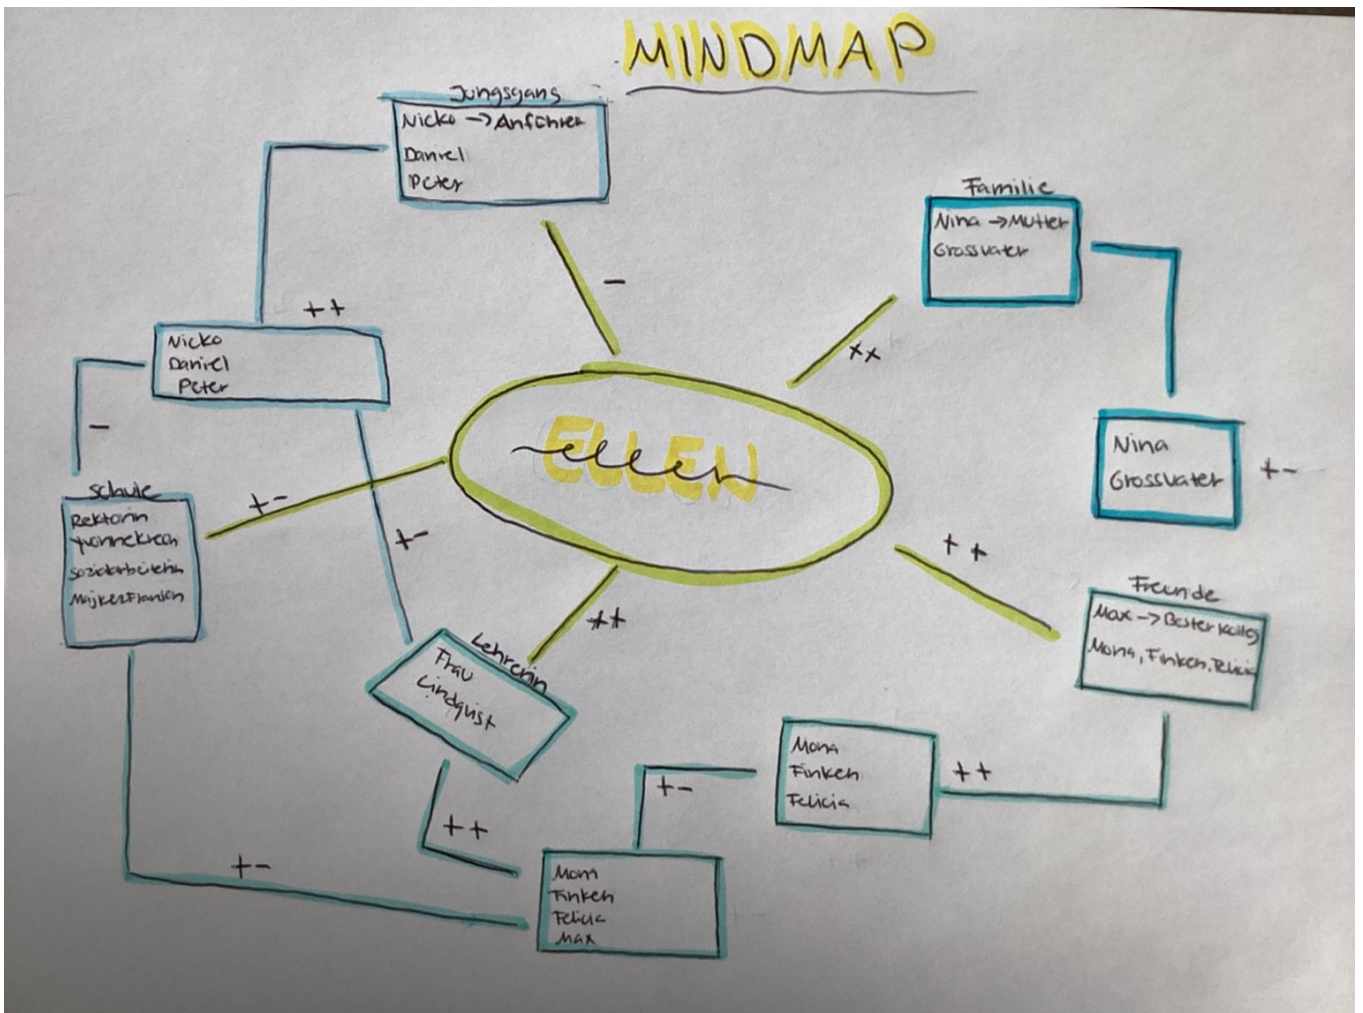 MINDMAP
Jungsgang
Nicko → Anführer
Daniel
Peter
-
Familie
Nina → Mutter
Grossvater
++
Nina
Grossvater
+-
++
Nicko
Daniel
Peter
-
ELLEN
ellen
Schule
Rektorin
Sozialarbeiterin
+-
+-
++
Lehrerin
Frau
Lindqvist
++
Freunde
Max → Bester Kolleg
Mona, Finken, Felicia
++
Mona
Finken
Felicia
+-
++
Mona
Finken
Felicia
Max
+-